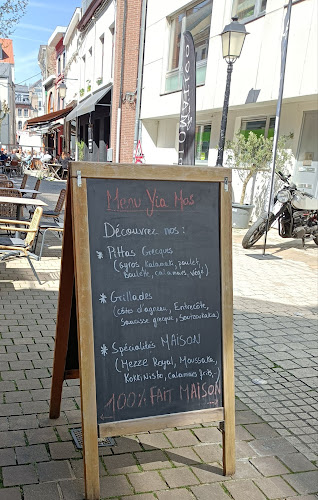 Menu Yia Mas
Découvrez nos :
* Pittas Grecques
(Gyros, Kalamaki, poulet,
Boulette, calamares, végé)
* Grillades
(côte d'agneau, Entrecôte,
Saucisse grecque, Soutzoukakia)
* Spécialités MAISON
(Mezze Royal, Moussaka,
Kokinisto, calamares frits,
100% FAIT MAISON